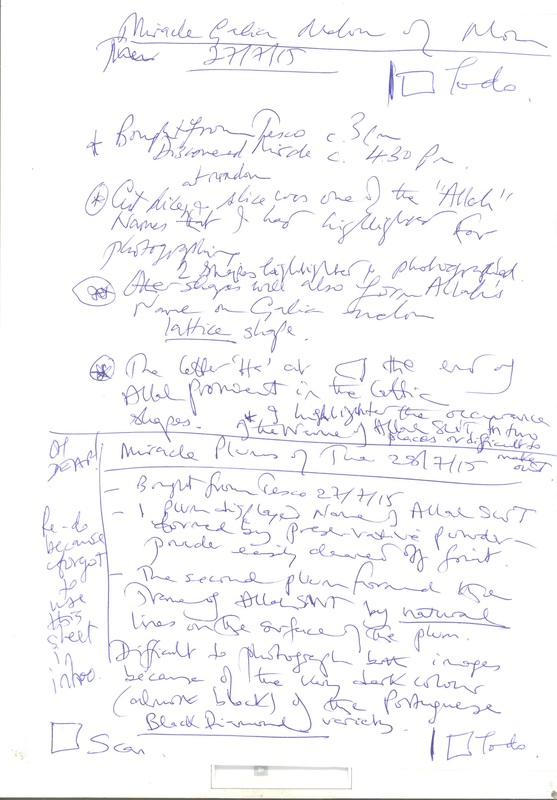 Miracle Galia Melon of Mon
27/7/15
Todo.
* Bought from Tesco c. 3 pm
Discovered Miracle c. 430 pm.
at random
* Cut slice, & slice was one of the "Allah"
Names that I had highlighted for
photographing
2 shapes highlighted & photographed.
** Other shapes will also form Allah's
Name on Galia melon
lattice shape.
* The letter 'Ha' at the end of
Allah prominent in the lattice
shapes.
* I highlighted the occurance
of the Name of Allah SWT in two
places as difficult to
make out.
Miracle Plums of The 28/7/15
- Bought from Tesco 27/7/15
- 1 plum displayed Name of Allah SWT
formed by preservative powder -
powder easily cleaned off fruit.
- The second plum formed the
Name of Allah SWT by natural
lines on the surface of the plum.
Difficult to photograph both images
because of the very dark colour
(almost black) of the Portuguese
Black Diamond variety.
Re-do
because
forgot
to
use
this
sheet
in
intro.
Scan
Todo.